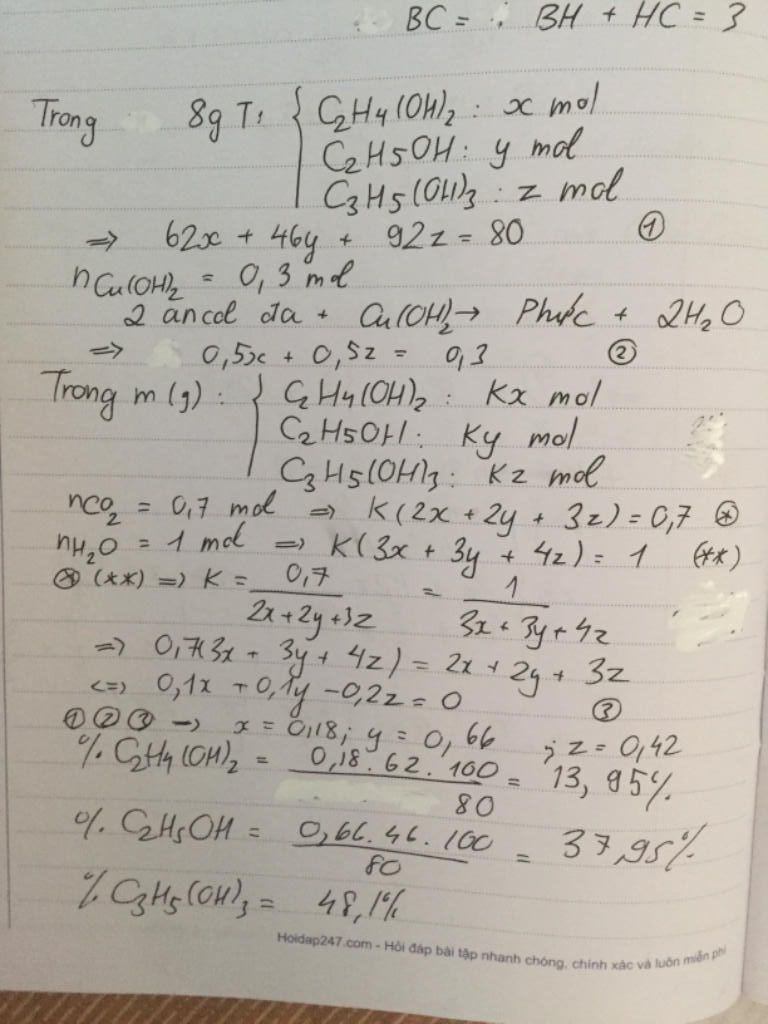 BC = ∴ BH + HC = 3
Trong 8g T: { C2H4(OH)2 : x mol
C2H5OH : y mol
C3H5(OH)3 : z mol
=> 62x + 46y + 92z = 80 ①
nCu(OH)2 = 0,3 mol
2 ancol đa + Cu(OH)2 → Phức + 2H2O
=> 0,5x + 0,5z = 0,3 ②
Trong m (g) : { C2H4(OH)2 : Kx mol
C2H5OH : Ky mol
C3H5(OH)3 : Kz mol
nCO2 = 0,7 mol => K(2x + 2y + 3z) = 0,7 (*)
nH2O = 1 mol => K(3x + 3y + 4z) = 1 (**)
(*) (**) => K = 0,7 / 2x + 2y + 3z = 1 / 3x + 3y + 4z
=> 0,7(3x + 3y + 4z) = 2x + 2y + 3z
<=> 0,1x + 0,1y - 0,2z = 0 ③
① ② ③ → x = 0,18; y = 0,66 ; z = 0,42
% C2H4(OH)2 = 0,18 . 62 . 100 / 80 = 13,95%
% C2H5OH = 0,66 . 46 . 100 / 80 = 37,95%
% C3H5(OH)3 = 48,1%
Hoidap247.com - Hỏi đáp bài tập nhanh chóng, chính xác và luôn miễn phí